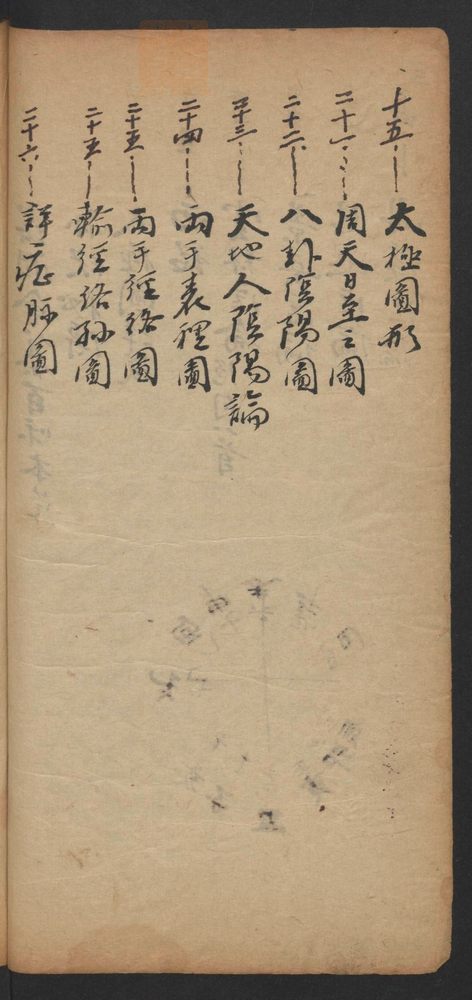 十五 太極圖形
二十一 周天日至之圖
二十二 八卦陰陽圖
二十三 天地人陰陽論
二十四 兩手表裡圖
二十五 兩手經絡圖
二十五 輸經絡脉圖
二十六 詳症脉圖